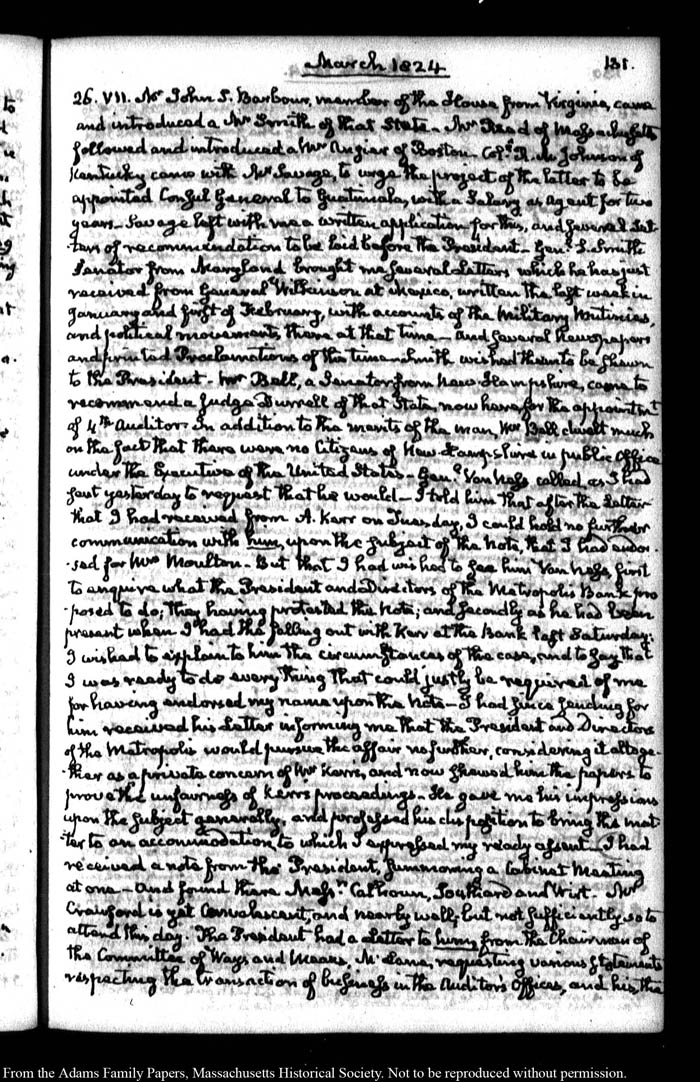 March 1824
131.
26. VII. Mr John S. Barbour, member of the House from Virginia, came
and introduced a Mr Smith of that State. Mr Read of Massachusetts
followed and introduced a Mr Angier of Boston. Coll. R. M. Johnson of
Kentucky came with Mr Savage, to urge the project of the latter to be
appointed Consul General to Guatimala, with a Salary as Agent for two
years. Savage left with me a written application for this, and several Let-
ters of recommendation to be laid before the President. Genl. S. Smith
Senator from Maryland brought me several Letters which he has just
received from General Wilkinson at Mexico, written the last week in
January and first of February, with accounts of the Military Mutinies,
and political movements there at that time. and several Newspapers
and printed Proclamations of the time. Smith wished them to be shewn
to the President. Mr Bell, a Senator from New Hampshire, came to
recommend a Judge Durrell of that State, now here for the appointment
of 4th Auditor. In addition to the merits of the man, Mr Bell dwelt much
on the fact that there were no Citizens of New-Hampshire in public Office
under the Executive of the United States. Genl. Van Ness called, as I had
sent yesterday to request that he would. I told him that after the Letter
that I had received from A. Kerr on Tuesday, I could hold no further
communication with him, upon the subject of the Note, that I had endor-
sed for Mrs Moulton. But that I had wished to see him Van Ness, first
to enquire what the President and Directors of the Metropolis Bank pro
posed to do; they having protested the Note; and secondly as he had been
present when I had the falling out with Kerr at the Bank last Saturday.
I wished to explain to him the circumstances of the case, and to say that
I was ready to do every thing that could justly be required of me
for having endorsed my name upon the Note. I had since sending for
him received his Letter informing me that the President and Directors
of the Metropolis would pursue the affair no further, considering it altoge-
ther as a private concern of Mr Kerrs, and now shewed him the papers to
prove the unfairness of Kerrs proceedings. He gave me his impressions
upon the subject generally, and professed his disposition to bring the mat-
ter to an accommodation, to which I expressed my ready assent. I had
received a note from the President, summoning a Cabinet Meeting
at one. And found there Messrs. Calhoun, Southard and Wirt. Mr
Crawford is yet Convalescent, and nearly well, but not sufficiently so to
attend this day. The President had a Letter to him from the Chairman of
the Committee of Ways and Means, McLane, requesting various Statements
respecting the transaction of business in the Auditor's Offices, and his, the
From the Adams Family Papers, Massachusetts Historical Society. Not to be reproduced without permission.